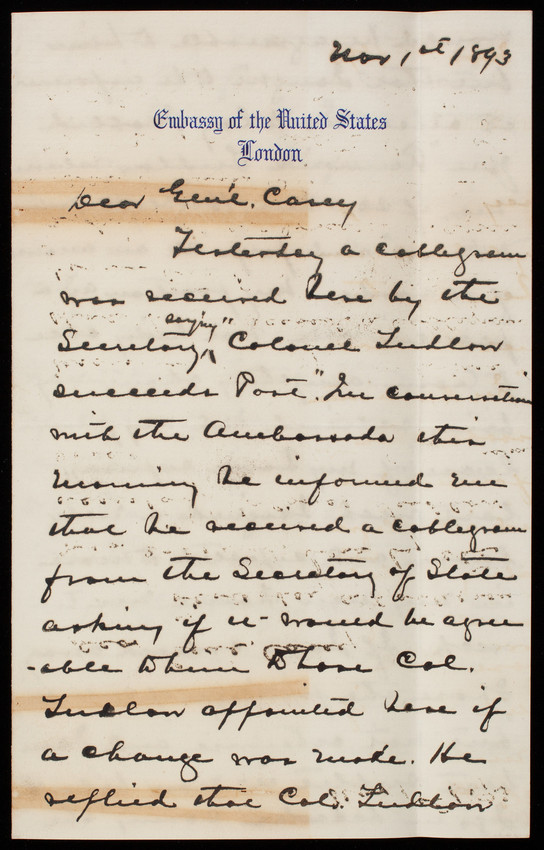 Nov 1st 1893
Embassy of the United States
London
Dear Gen'l Casey
Yesterday a cablegram
was received here by the
saying
Secretary, "Colonel Ludlow
succeeds Post". In conversation
with the Ambassador this
morning he informed me
that he received a cablegram
from the Secretary of State
asking if it would be agree
-able to him to have Col.
Ludlow appointed here if
a change was made. He
replied that Col. Ludlow